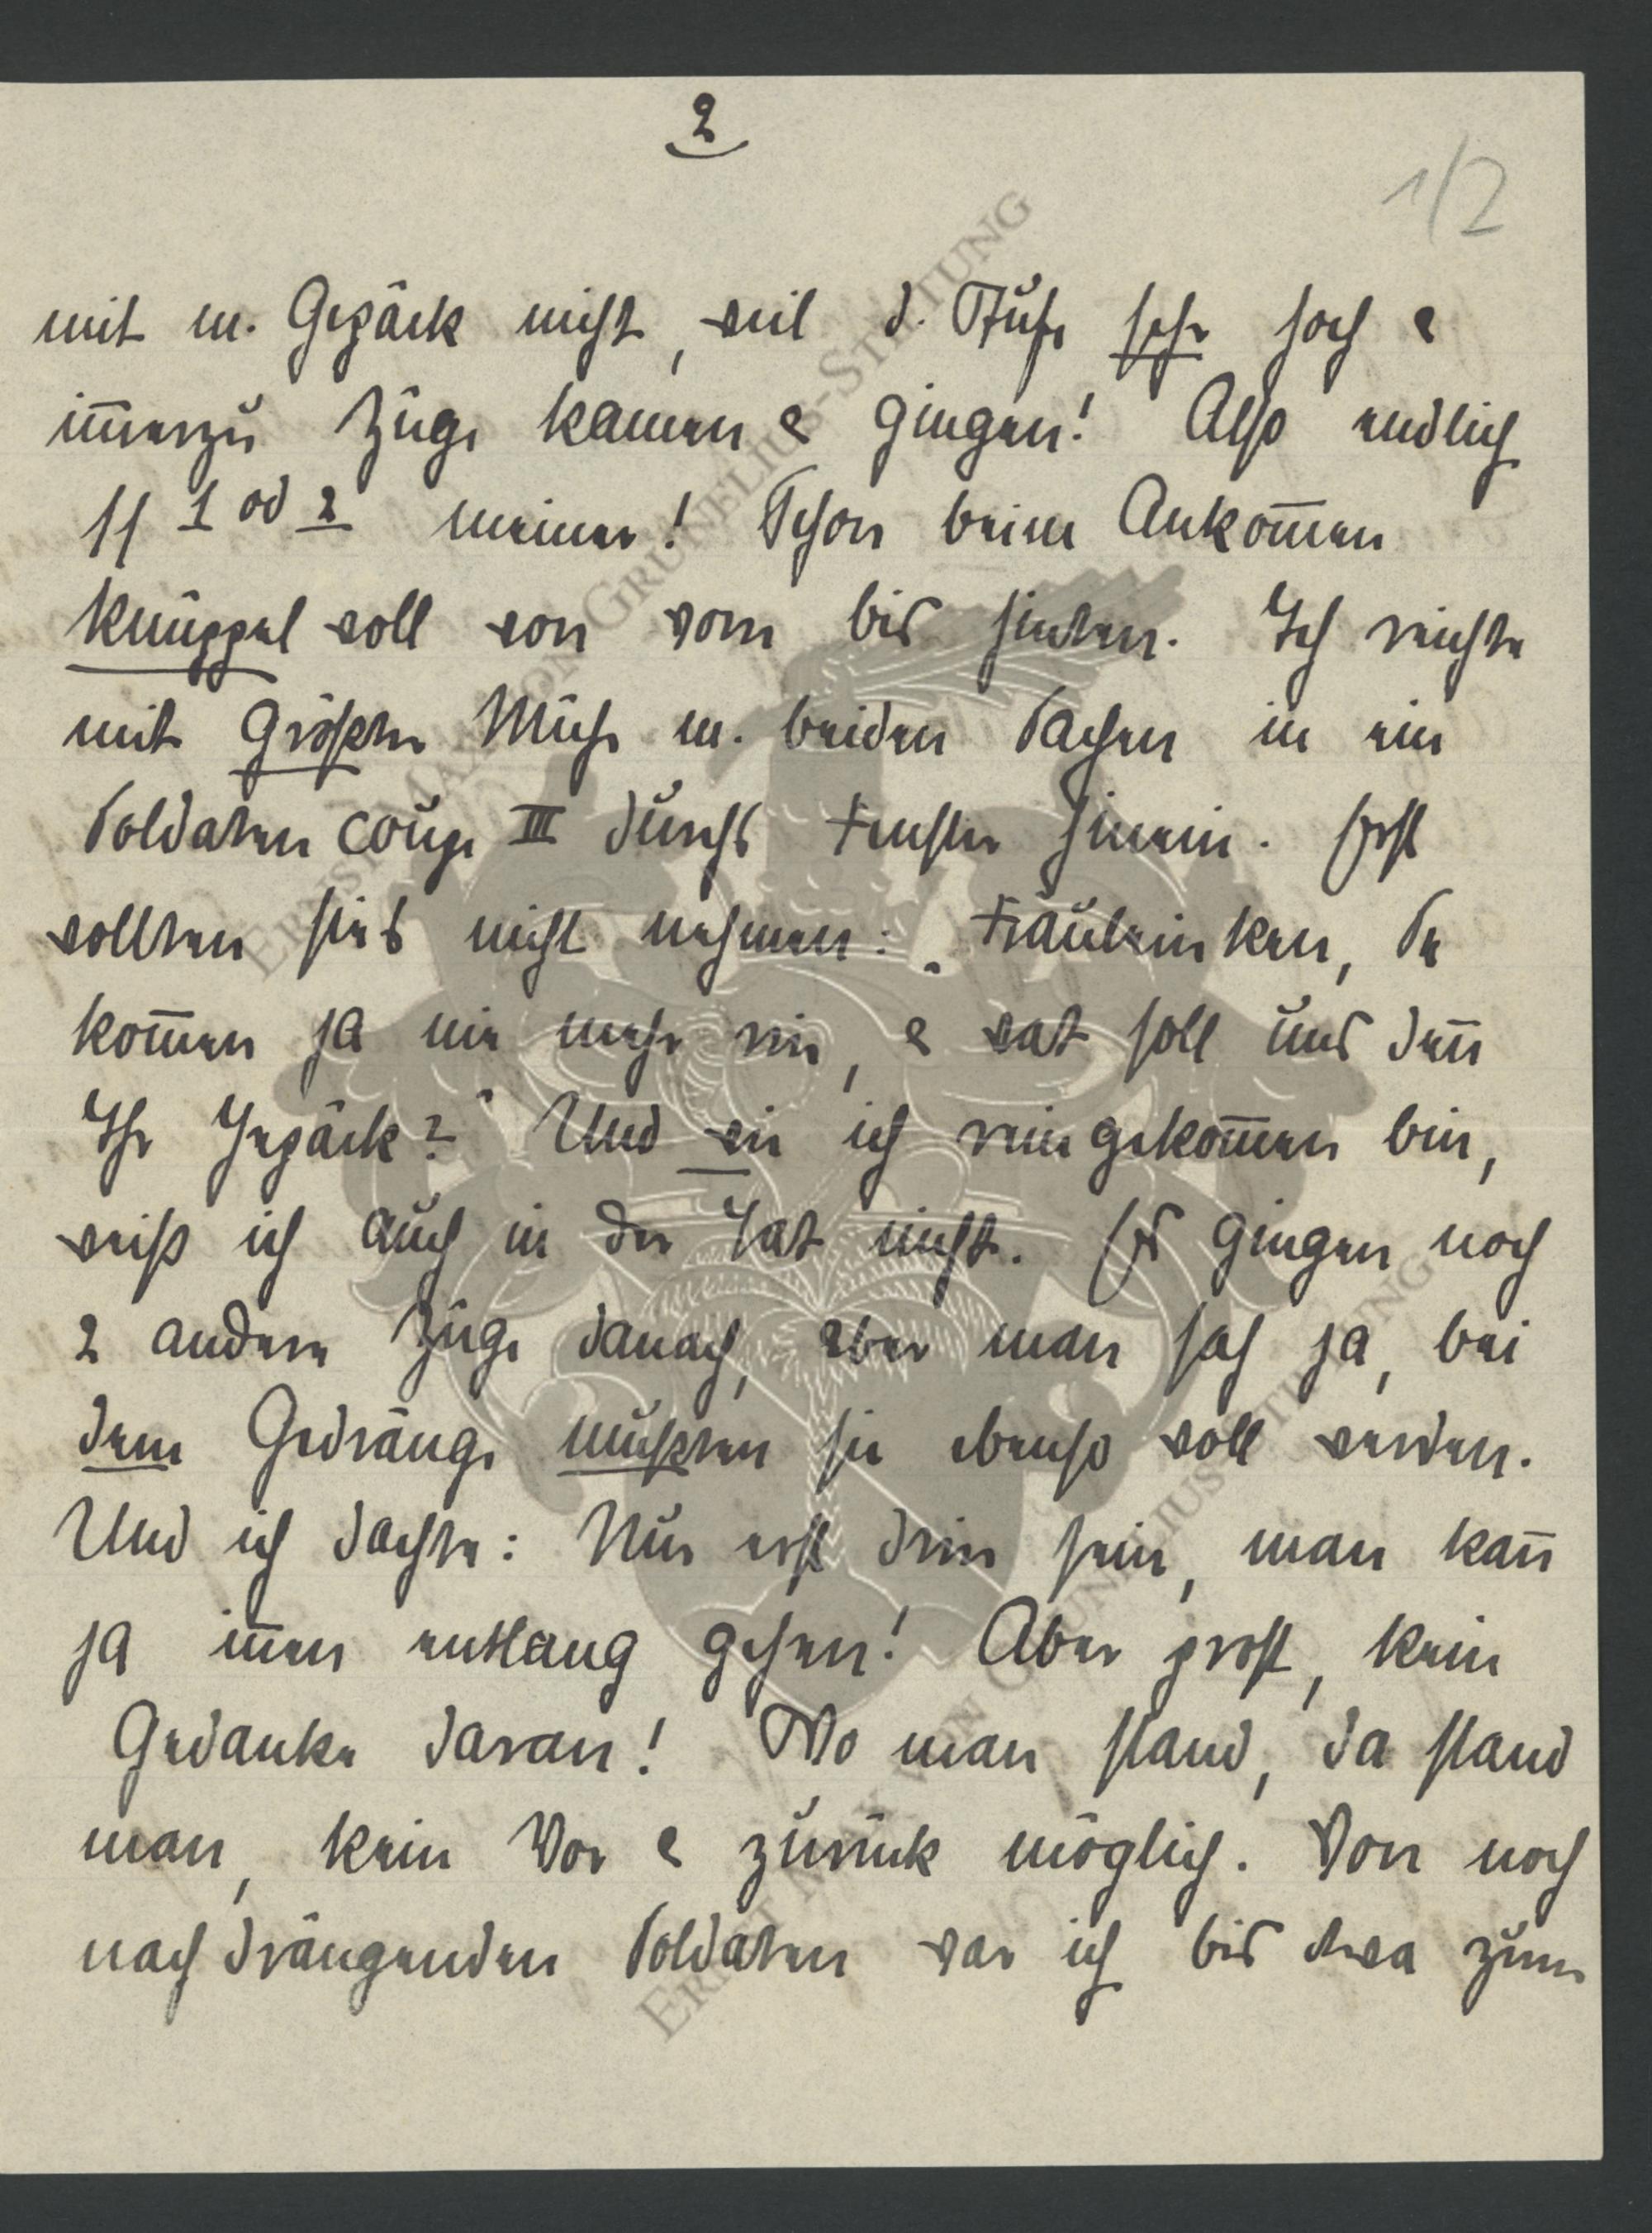 2
1/2
mit m. Gepäck nicht, weil d. Stufe sehr hoch &
im̅erzu Züge kamen & gingen! Also endlich
11 1 od 2 meiner! Schon beim Ankom̅en
knüppel voll von vorn bis hinten. Ich reichte
mit größter Mühe m. beiden Sachen in ein
Soldaten coupe III durchs Fenster hinein. Erst
wollten sie's nicht nehmen: „Fräuleinken, Se
kom̅en ja nie mehr rin, & wat soll uns den̅
Ihr Jepäck?" Und wie ich reingekom̅en bin,
weiß ich auch in der Tat nicht. Es gingen noch
2 andere Züge danach, aber man sah ja, bei
dem Gedränge mußten sie ebenso voll werden.
Und ich dachte: Nur erst drin sein, man kan̅
ja in̅en entlang gehen! Aber prost, kein
Gedanke daran! Wo man stand, da stand
man, kein Vor & zurück möglich. Von noch
nach drängenden Soldaten war ich bis etwa zum
ERNST MAX VON GRUNELIUS-STIFTUNG
ERNST MAX VON GRUNELIUS-STIFTUNG